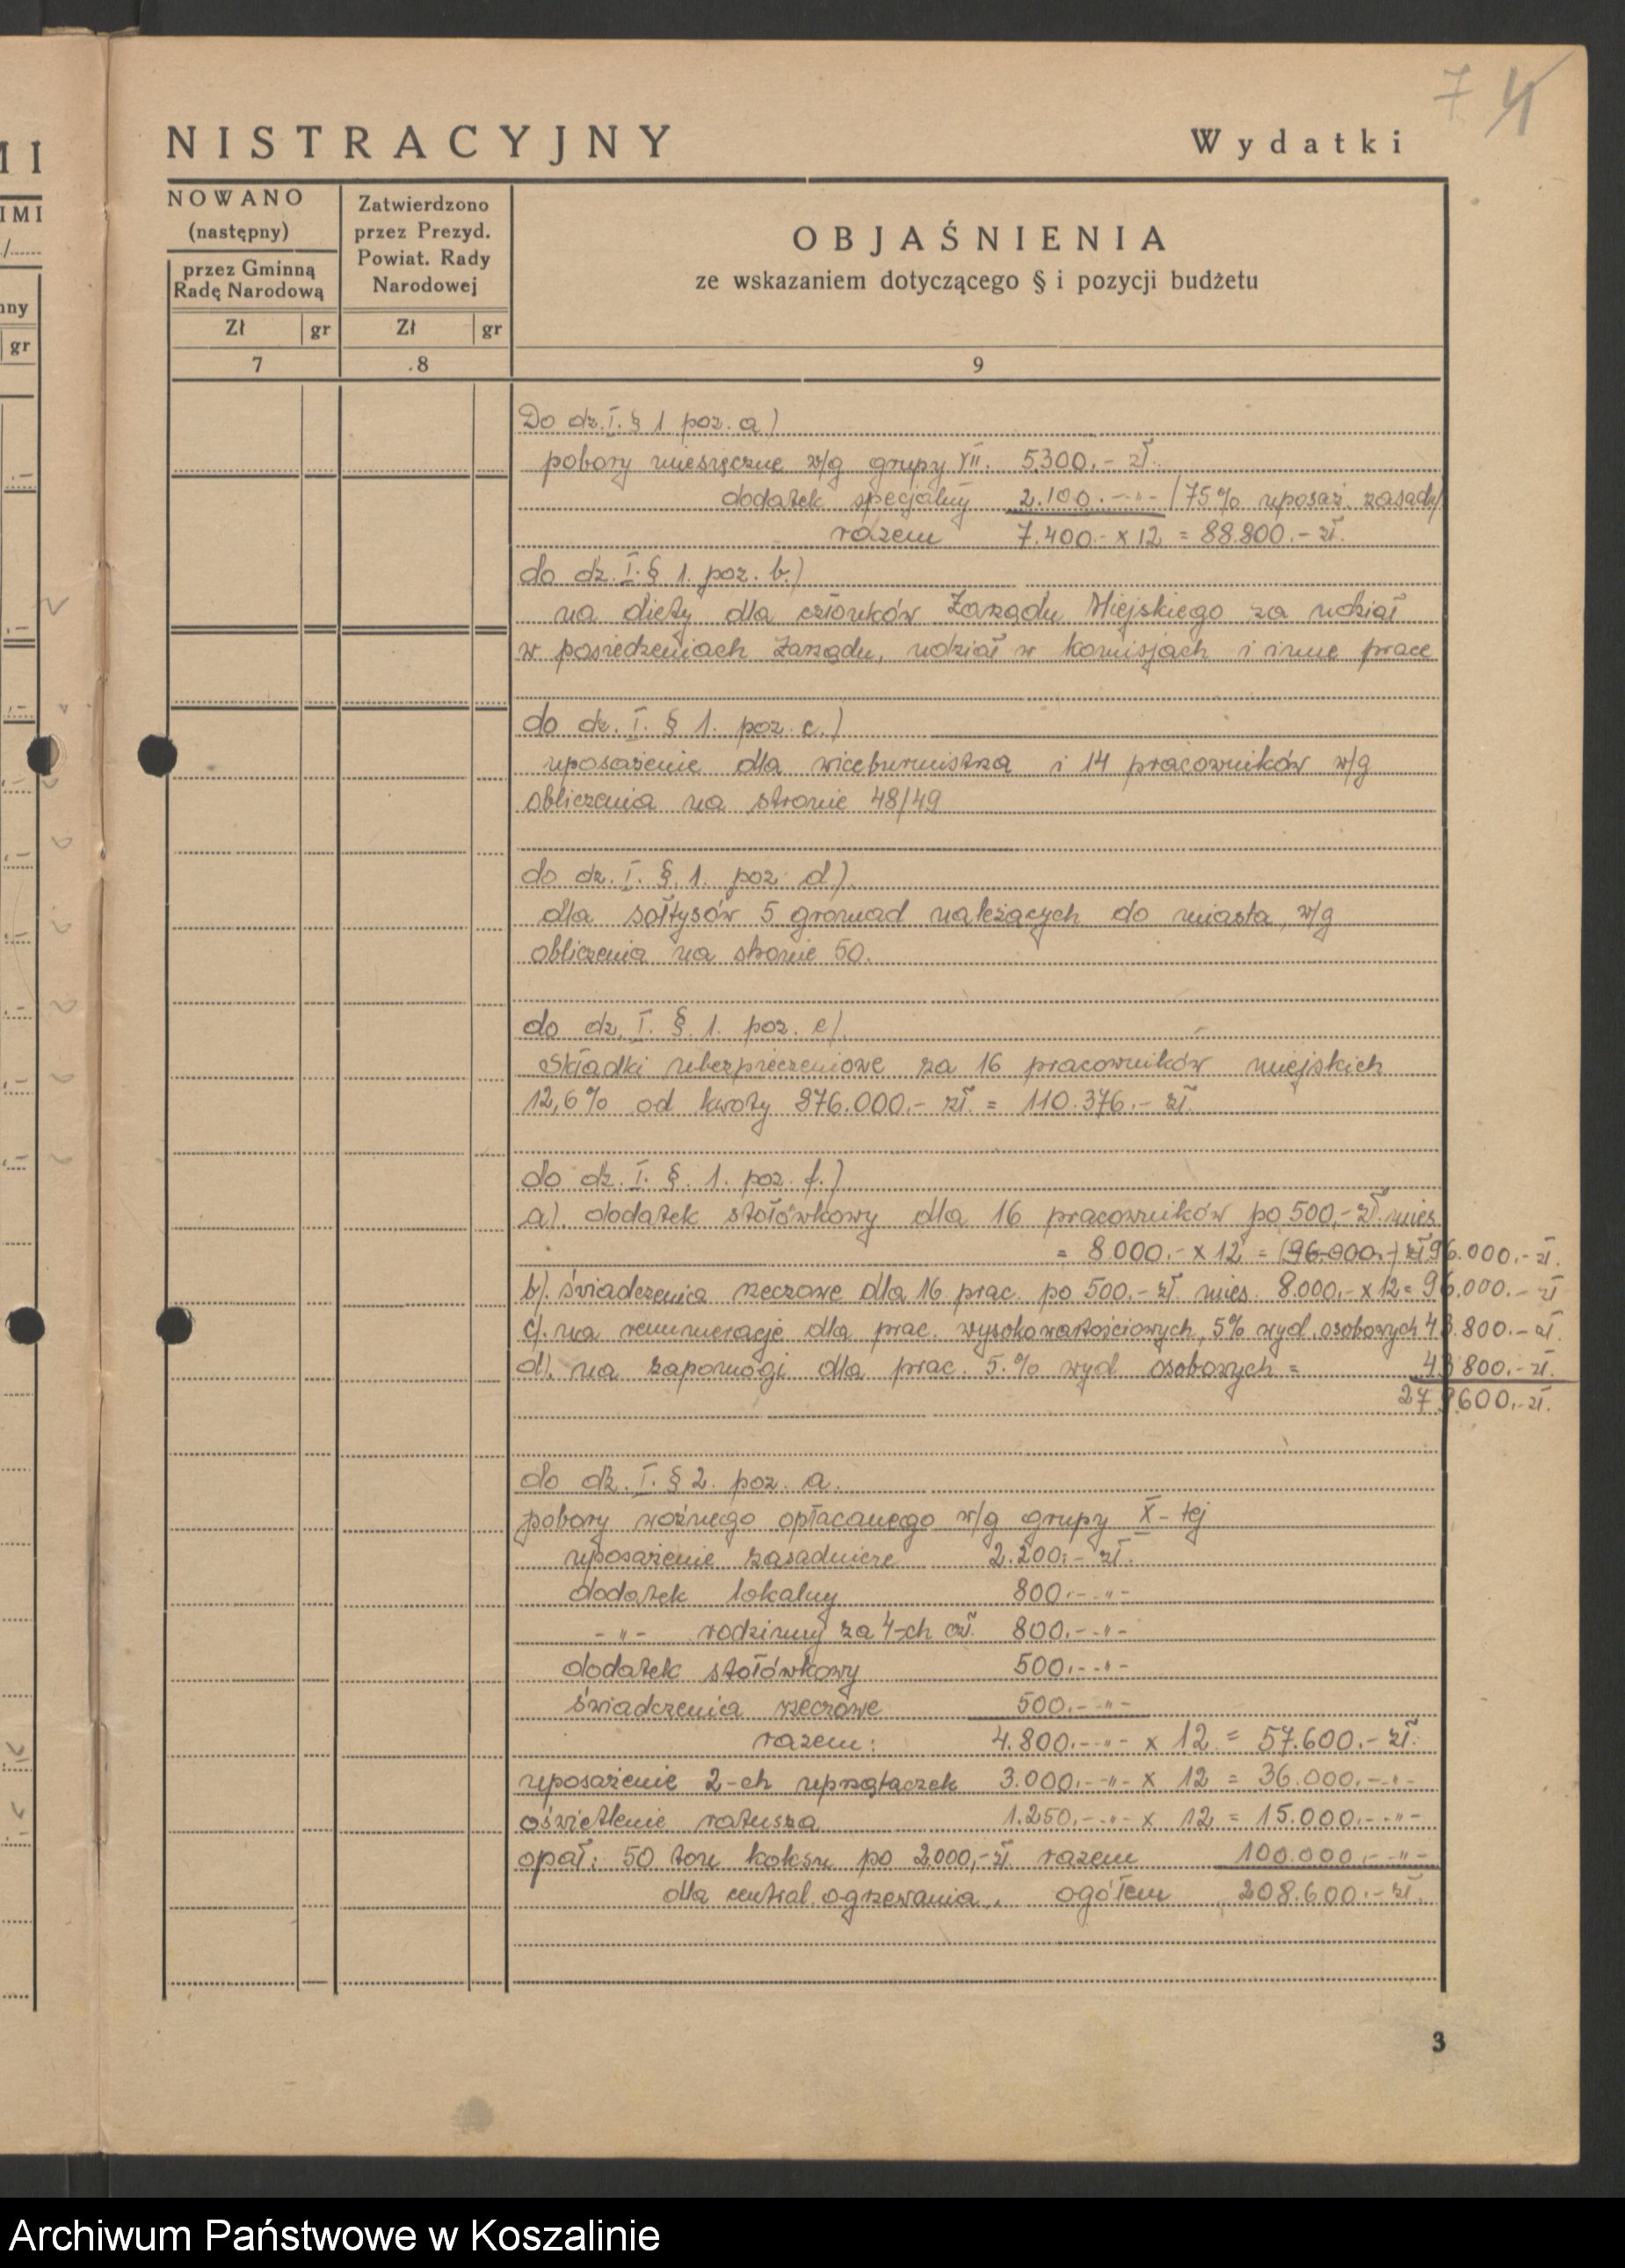 7 4
NISTRACYJNY
Wydatki
MI
IMI
nny
gr
NOWANO
(następny)
przez Gminną
Radę Narodową
Zł gr
7
Zatwierdzono
przez Prezyd.
Powiat. Rady
Narodowej
Zł gr
8
OBJAŚNIENIA
ze wskazaniem dotyczącego § i pozycji budżetu
9
Do dz. I. § 1 poz. a)
pobory miesięczne w/g grupy VII. 5300.- zł.
dodatek specjalny 2.100.- -"- /75% uposaż. zasadn/
razem 7.400.- x 12 = 88.800.- zł.
do dz. I. § 1. poz. b.)
na diety dla członków Zarządu Miejskiego za udział
w posiedzeniach Zarządu, udział w komisjach i inne prace
do dz. I. § 1. poz. c.)
uposażenie dla wiceburmistrza i 14 pracowników w/g
obliczenia na stronie 48/49
do dz. I. § 1. poz d).
dla sołtysów 5 gromad należących do miasta, w/g
obliczenia na stronie 50.
do dz. I. § 1. poz. e).
składki ubezpieczeniowe za 16 pracowników miejskich
12,6% od kwoty 876.000.- zł. = 110.376.- zł.
do dz. I. § 1. poz. f.)
a). dodatek stołówkowy dla 16 pracowników po 500,- zł. mies.
= 8.000.- x 12 = (96.000.-) zł 96.000.- zł.
b). świadczenia rzeczowe dla 16 prac. po 500.- zł. mies. 8.000.- x 12 = 96.000.- zł
c). na remuneracje dla prac. wysokowartościowych, 5% wyd. osobowych 43.800.- zł.
d). na zapomogi dla prac. 5.% wyd osobowych = 43 800.- zł.
279600.- zł.
do dz. I. § 2. poz. a.
pobory woźnego opłacanego w/g grupy X-tej
uposażenie zasadnicze 2.200.- zł.
dodatek lokalny 800.- -"-
-"- rodzinny za 4-ch czł. 800.- -"-
dodatek stołówkowy 500.- -"-
świadczenia rzeczowe 500.- -"-
razem: 4.800.- -"- x 12 = 57.600.- zł.
uposażenie 2-ch uprzątaczek 3.000.- -"- x 12 = 36.000.- -"-
oświetlenie ratusza 1.250.- -"- x 12 = 15.000.- -"-
opał: 50 ton koksu po 2.000,- zł. razem 100.000.- -"-
dla central. ogrzewania.. ogółem 208.600.- zł.
3
Archiwum Państwowe w Koszalinie